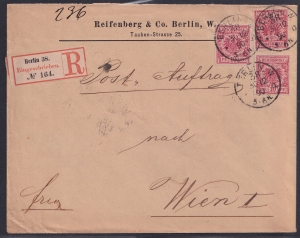 236
Reifenberg & Co. Berlin, W.
Tauben-Strasse 25.
Berlin 38.
Eingeschrieben.
№ 164.
R
Post, Auftrag
nach
Wien I
frei
BERLIN
BERLIN
5-6N